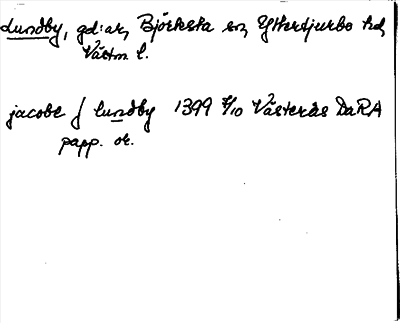 Lundby, gd:ar, Björksta sn, Yttertjurbo hd,
Västm l.
jacobe j lundby 1399 7/10 Västerås DaRA
papp. or.